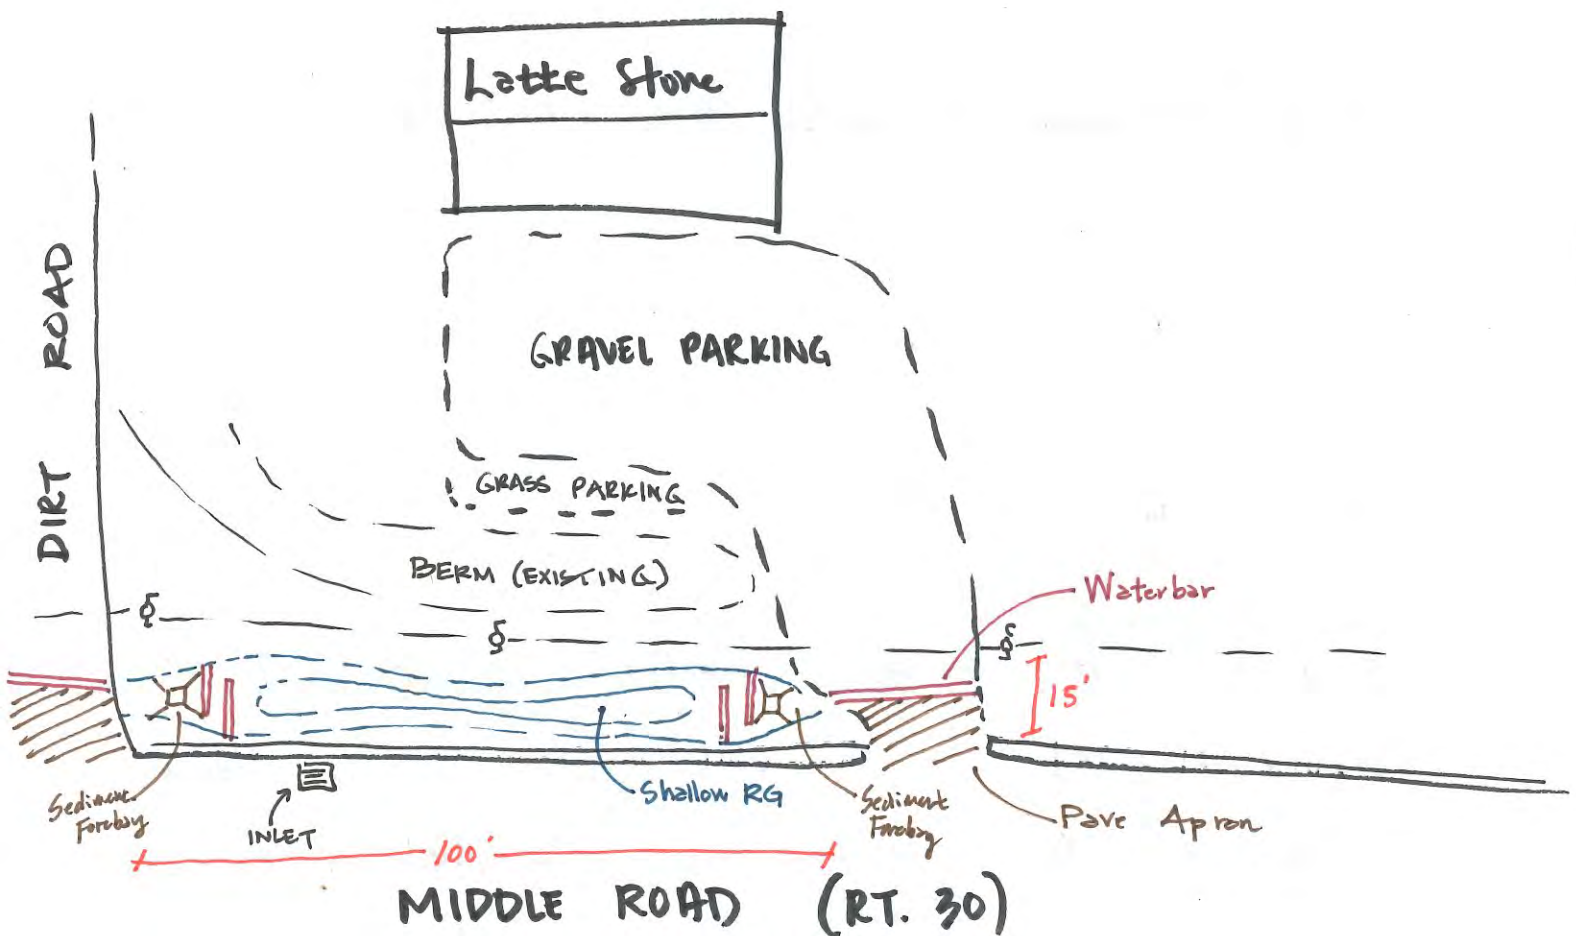 Latte Stone
DIRT ROAD
GRAVEL PARKING
GRASS PARKING
BERM (EXISTING)
Waterbar
15'
Sediment
Forebay
INLET
Shallow RG
Sediment
Forebay
Pave Apron
100'
MIDDLE ROAD (RT. 30)